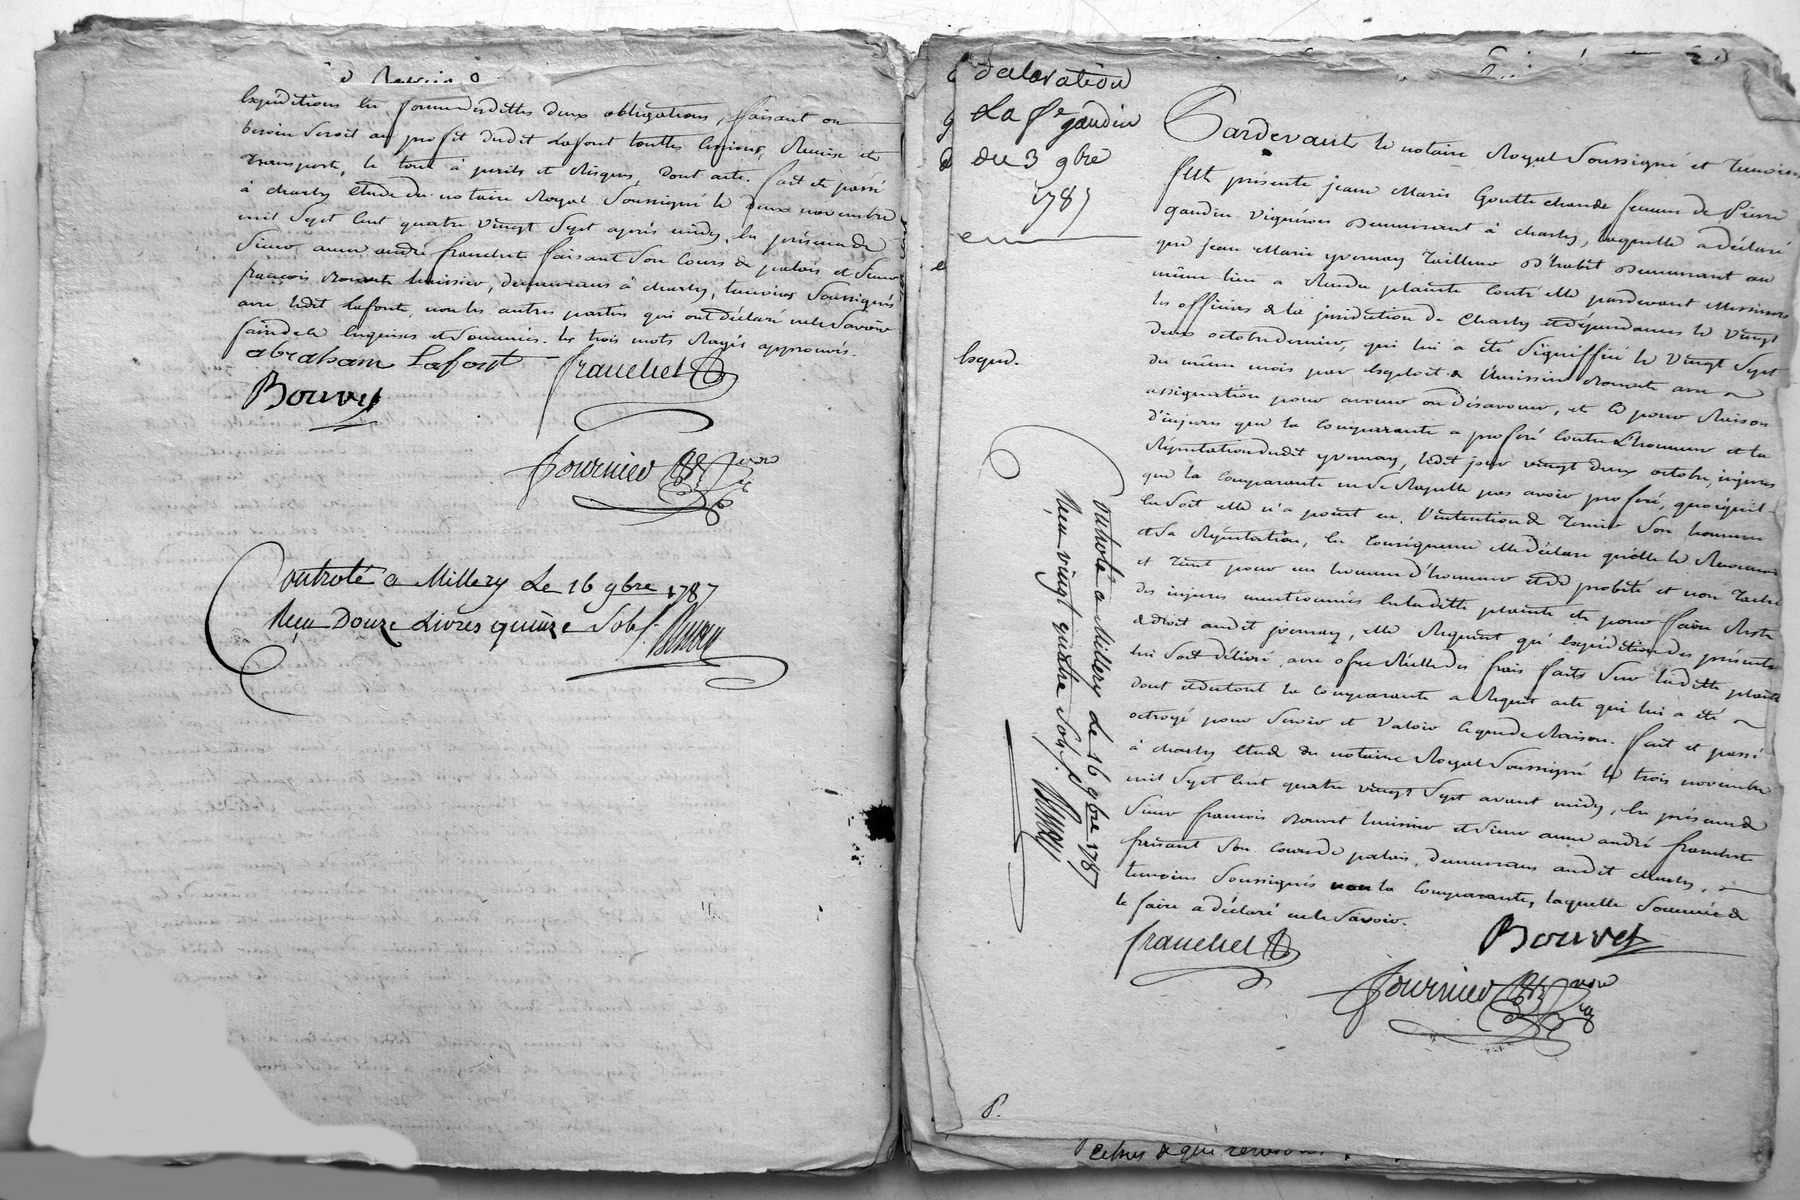 Expéditions en forme desdittes deux obligations, faisant ou
besoin seroit au profit dudit Lafont touttes cessions, Remise et
transports, le tout à perils et Risques, dont acte. fait et passé
à charly Etude du notaire Royal soussigné le deux novembre
mil sept cent quatre vingt sept après midy, en présence de
sieur aimé andré franchet faisant son cours de palais et sieur
françois Bouvet huissier, demeurans à charly, temoins soussignés
avec ledit Lafont, non les autres parties qui ont déclaré ne le savoir
faire de ce Enquises et sommées. les trois mots Rayés approuvés.
abraham Lafont franchet
Bouvet
fournier
Controlé a Millery Le 16 9bre 1787
Reçu Douze Livres quinze Sols
declaration
La fe gaudin
du 3 9bre
1787
Exped.
Controlé a Millery Le 16 9bre 1787
Reçu vingt quatre Sols
Pardevant le notaire Royal soussigné et temoins
fut présente jeanne Marie Goutte chaude femme de Pierre
gaudin vigneron demeurant à charly, laquelle a déclaré
que jean Marie yvernay Tailleur d'habit demeurant au
même lieu a Rendu plainte contr'elle pardevant Messieurs
les officiers de la jurisdiction de Charly et dépendances le vingt
deux octobre dernier, qui lui a été signiffiée le vingt sept
du même mois par Exploit de l'huissier Bouvet avec
assignation pour avouer ou désavouer, et ce pour Raison
d'injures que la comparante a proferé contre l'honneur et la
Réputation dudit yvernay, ledit jour vingt deux octobre, injures
que la comparante ne se Rapelle pas avoir proferé, quoiqu'il
en soit elle n'a point eu l'intention de ternir son honneur
et sa Réputation, en conséquence elle déclare qu'elle le Reconnoit
et tient pour un homme d'honneur et de probité et non taché
des injures mentionnées en laditte plainte et pour faire Reste
de droit audit yvernay, elle Requiert qu'expédition des présentes
lui soit délivré, avec offre Réelle des frais faits sur laditte plainte
dont et du tout la comparante a Requis acte qui lui a été
octroyé pour servir et valoir ce que de Raison. fait et passé
à charly Etude du notaire Royal soussigné le trois novembre
mil sept cent quatre vingt sept avant midy, en présence de
sieur francois Bouvet huissier et sieur aimé andré franchet
faisant son cours de palais, demeurans audit charly,
temoins soussignés non la comparante, laquelle sommée de
le faire a déclaré ne le savoir.
franchet Bouvet
fournier